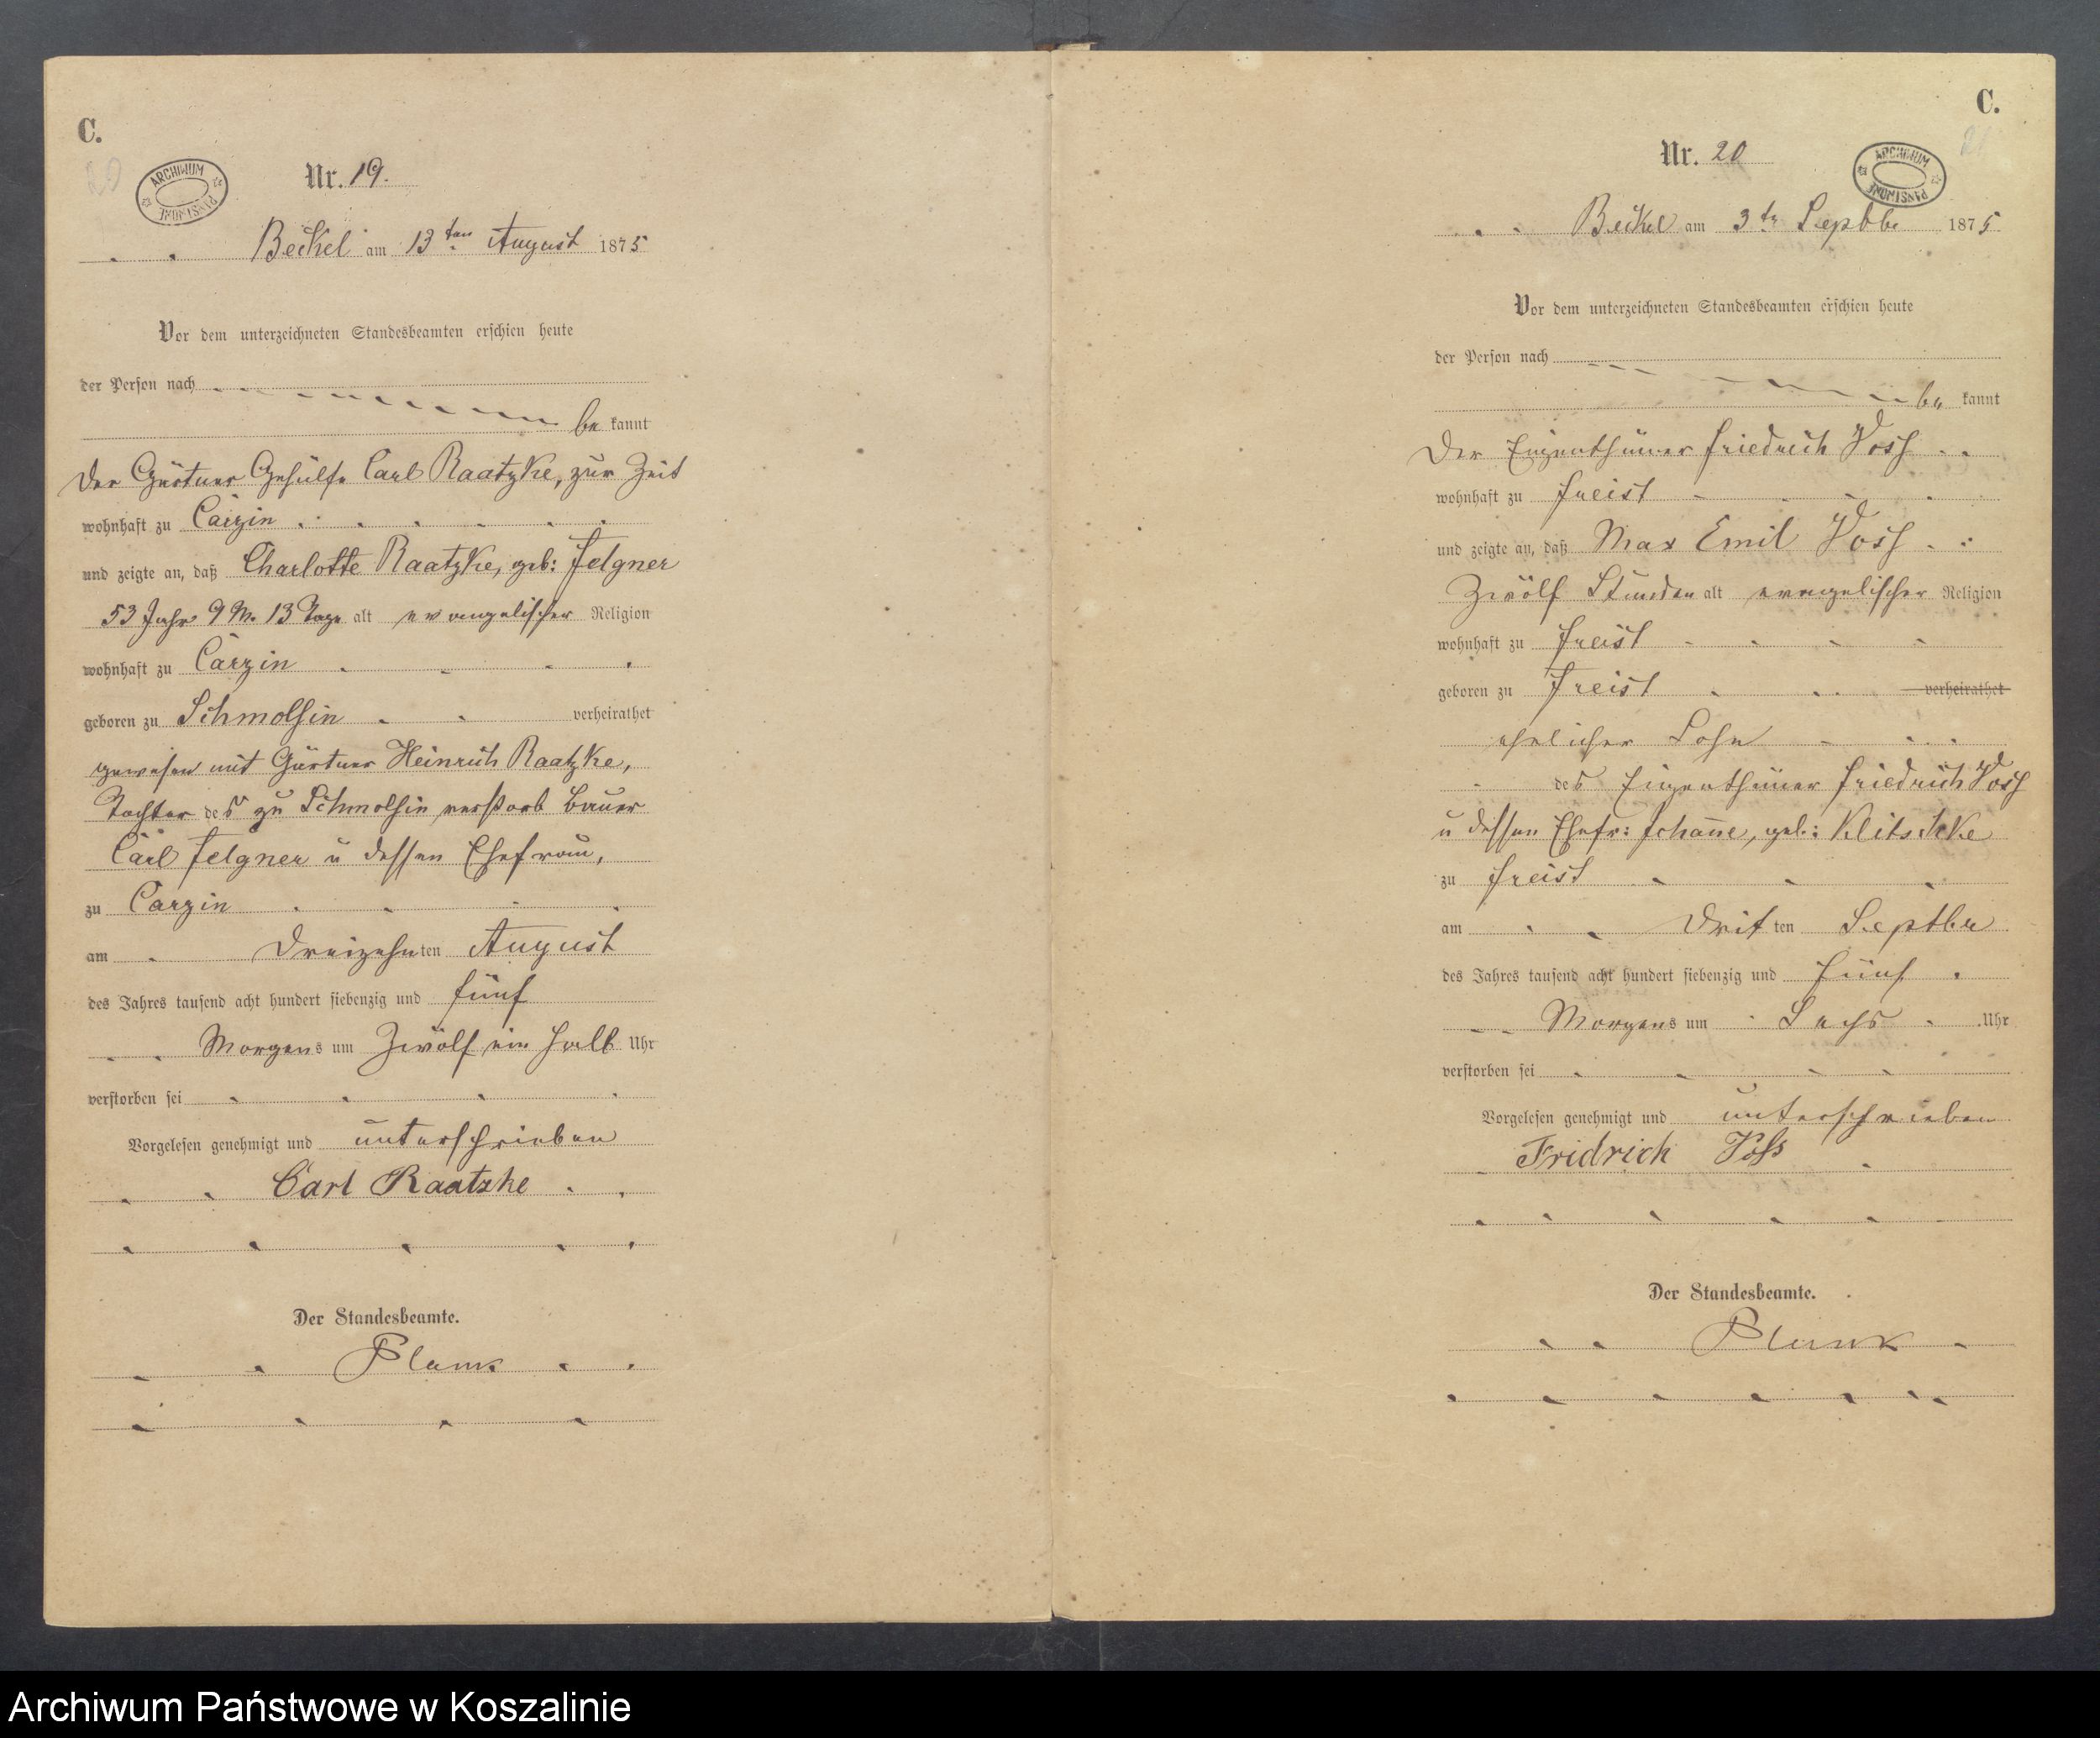 C.
20
ARCHIWUM PAŃSTWOWE
Nr. 19.
Beckel am 13ten August 1875
Vor dem unterzeichneten Standesbeamten erschien heute
der Person nach
be kannt
Der Gärtner Gehülfe Carl Raatzke, zur Zeit
wohnhaft zu Carzin
und zeigte an, daß Charlotte Raatzke, geb: Felgner
53 Jahr 9 M. 13 Tage alt evangelischer Religion
wohnhaft zu Carzin
geboren zu Schmolsin verheirathet
gewesen mit Gärtner Heinrich Raatzke,
Tochter des zu Schmolsin verstorb Bauer
Carl Felgner u dessen Ehefrau,
zu Carzin
am Dreizehnten August
des Jahres tausend acht hundert siebenzig und fünf
Morgens um Zwölf ein halb Uhr
verstorben sei
Vorgelesen genehmigt und unterschrieben
Carl Raatzke
Der Standesbeamte.
Plank
C.
21
ARCHIWUM PAŃSTWOWE
Nr. 20
Beckel am 3te Septbr 1875
Vor dem unterzeichneten Standesbeamten erschien heute
der Person nach
be kannt
Der Eigenthümer Friedrich Voss
wohnhaft zu Freist
und zeigte an, daß Max Emil Voss
Zwölf Stunden alt evangelischer Religion
wohnhaft zu Freist
geboren zu Freist verheirathet
ehelicher Sohn
des Eigenthümer Friedrich Voss
u dessen Ehefr: Johanne, geb: Klitschke
zu Freist
am Dritten Septbr
des Jahres tausend acht hundert siebenzig und fünf
Morgens um Sechs Uhr
verstorben sei
Vorgelesen genehmigt und unterschrieben
Fridrich Voss
Der Standesbeamte.
Plank
Archiwum Państwowe w Koszalinie